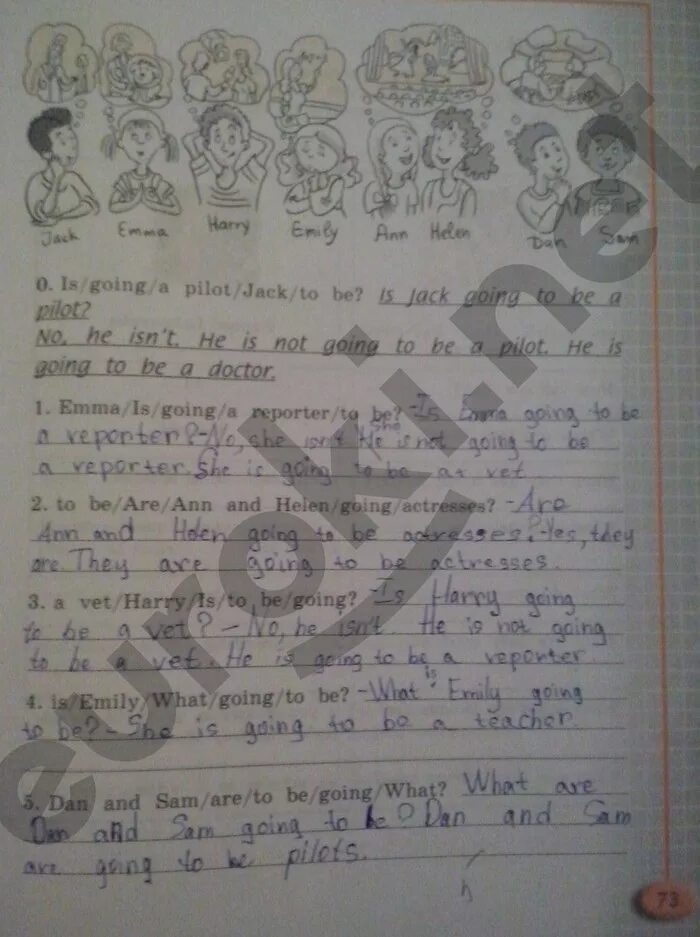 Jack Emma Harry Emily Ann Helen Dan Sam
0. Is/going/a pilot/Jack/to be? Is Jack going to be a
pilot?
No, he isn't. He is not going to be a pilot. He is
going to be a doctor.
1. Emma/Is/going/a reporter/to be? -Is Emma going to be
a reporter? -No, she isn't She is not going to be
a reporter. She is going to be a vet
2. to be/Are/Ann and Helen/going/actresses? -Are
Ann and Helen going to be actresses? -Yes, they
are. They are going to be actresses.
3. a vet/Harry/Is/to be/going? -Is Harry going
to be a vet? - No, he isn't. He is not going
to be a vet. He is going to be a reporter.
4. is/Emily/What/going/to be? -What is Emily going
to be? - She is going to be a teacher.
5. Dan and Sam/are/to be/going/What? What are
Dan and Sam going to be? Dan and Sam
are going to be pilots.
73
euroki.net